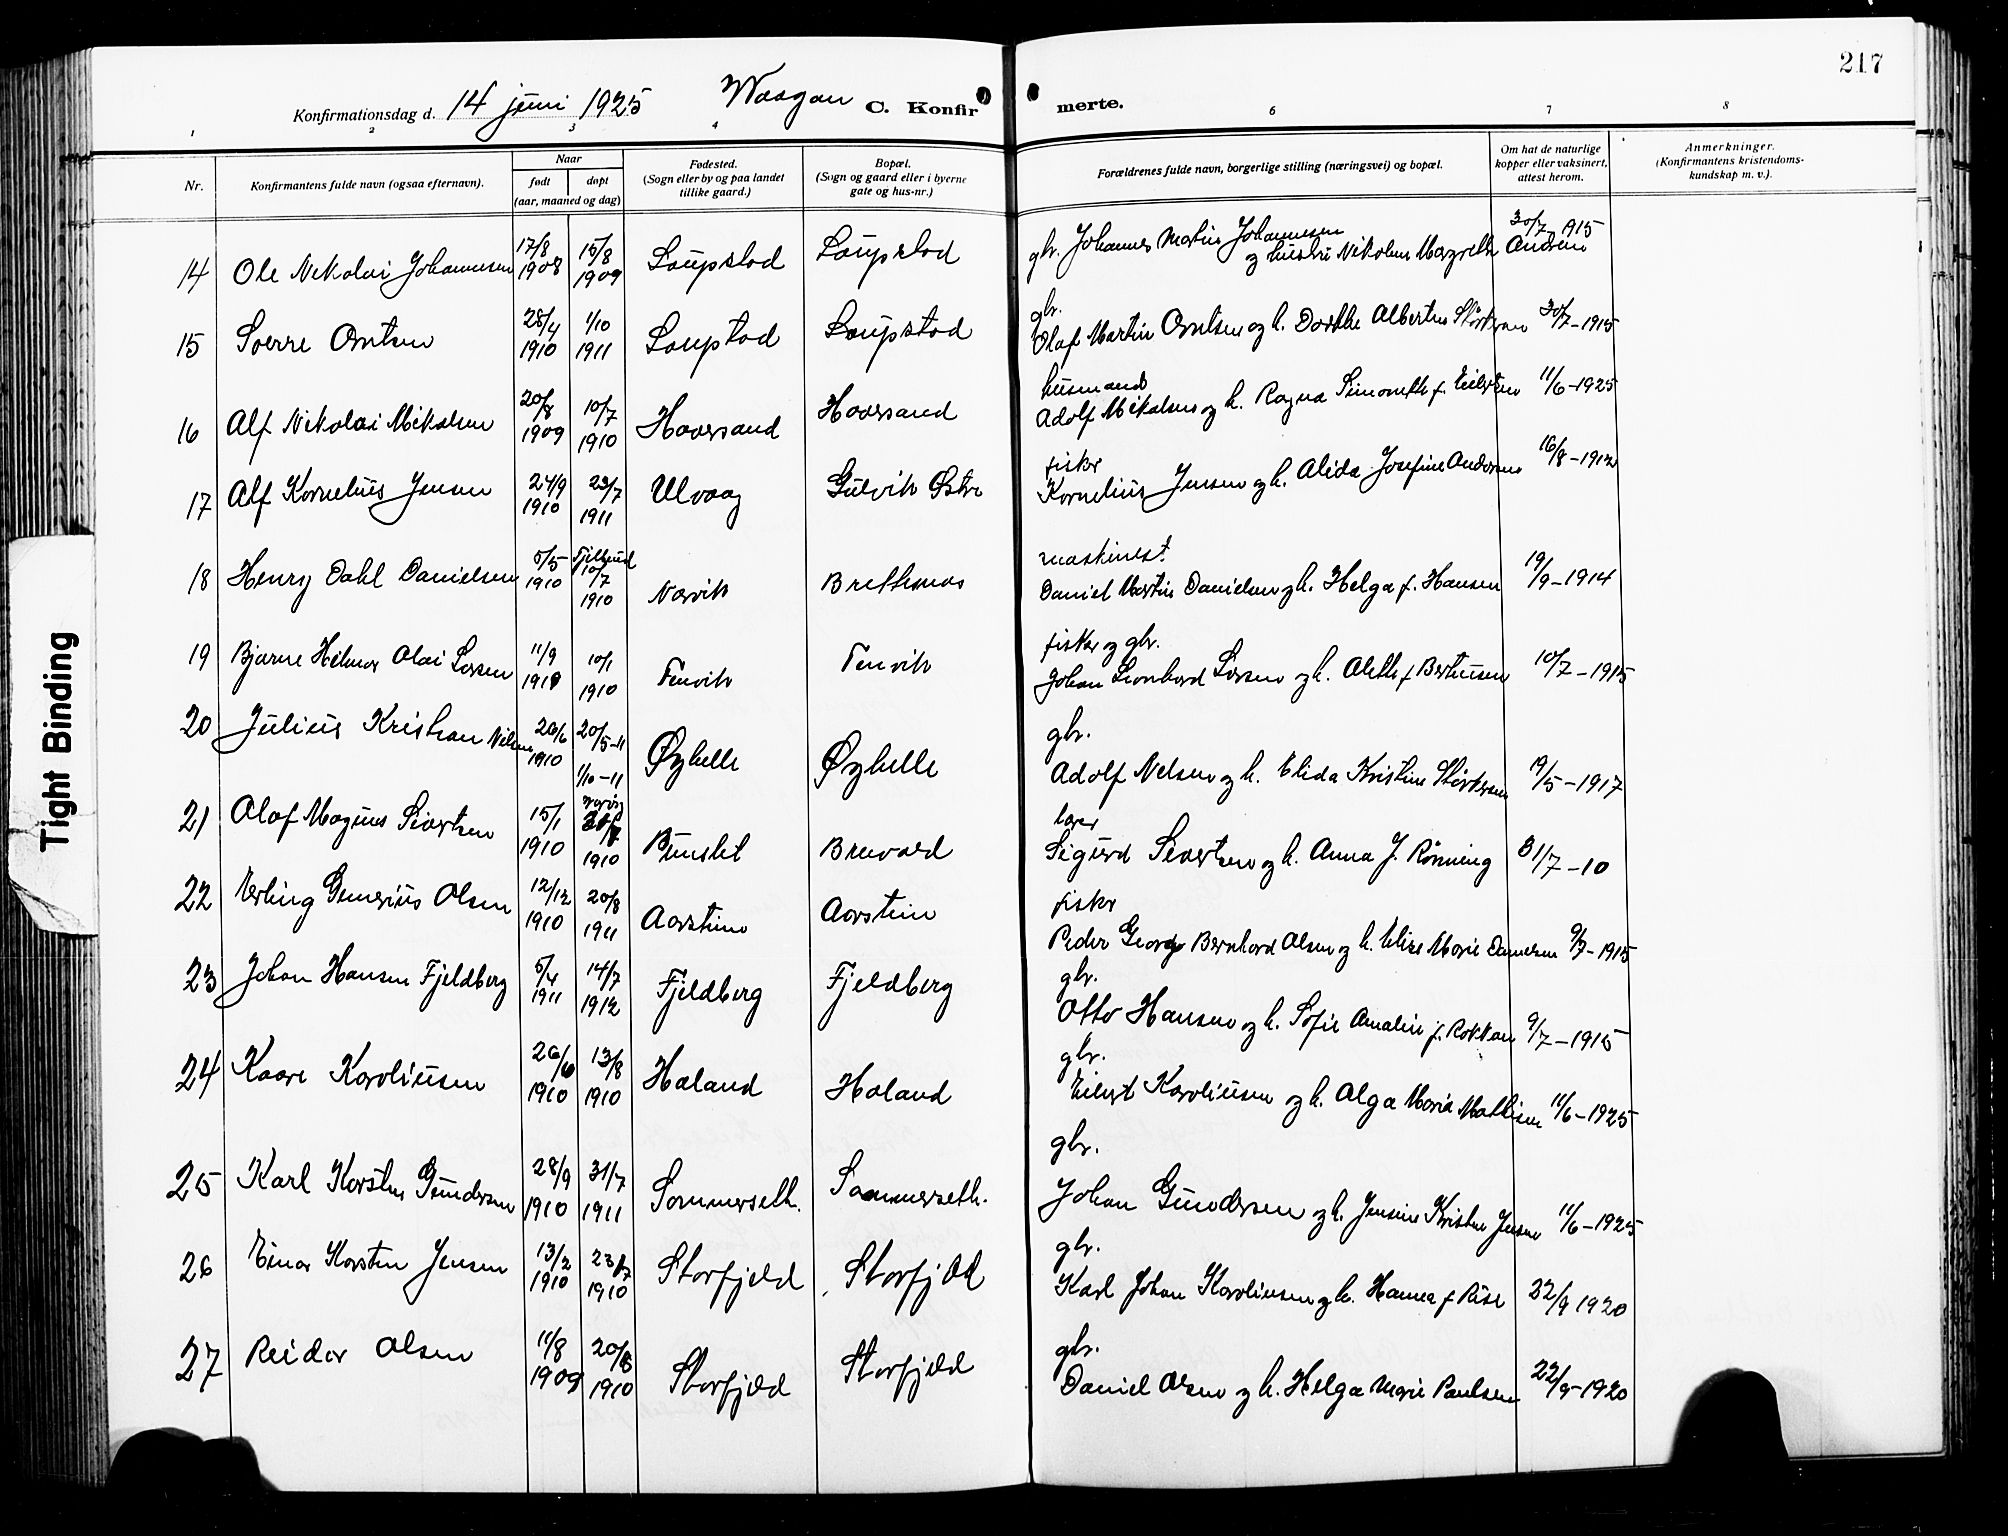 217
Konfirmationsdag d. 14 juni 1925 Waagan C. Konfirmerte.
1 2 3 4 6 7 8
Nr.
Konfirmantens fulde navn (ogsaa efternavn).
Naar
født døpt
(aar, maaned og dag)
Fødested.
(Sogn eller by og paa landet
tillike gaard.)
Bopæl.
(Sogn og gaard eller i byerne
gate og hus-nr.)
Forældrenes fulde navn, borgerlige stilling (næringsvei) og bopæl.
Om hat de naturlige
kopper eller vaksinert,
attest herom.
Anmerkninger.
(Konfirmantens kristendoms-
kundskap m. v.).
14 Ole Nikolai Johannesen 17/8 1908 15/8 1909 Laupstad Laupstad gbr. Johannes Martin Johannesen 30/7 1915
og hustru Nikoline Margrethe Andrea
15 Sverre Arntsen 28/4 1910 1/10 1911 Laupstad Laupstad gbr.
Olaf Martin Arntsen og h. Dorthe Albertine Størkersen 30/7-1915
16 Alf Nikolai Mikalsen 20/8 1909 10/7 1910 Haversand Haversand husmand
Adolf Mikalsen og h. Ragna f. Eilertsen 11/6-1925
17 Alf Kornelius Jensen 24/9 1910 23/7 1911 Ulvaag Gulvik Østre fisker
Kornelius Jensen og h. Alida Josefine Andersen 16/8-1912
18 Henry Dahl Danielsen 5/5 1910 10/7 1910 Narvik Brettesnes maskinest.
Daniel Martin Danielsen og h. Helga f. Hansen 19/9-1914
19 Bjarne Hilmar Olai Larsen 11/9 10/1 1910 Tenvik Tenvik fisker og gbr.
Johan Leonhard Larsen og h. Alette f Berthinsen 10/7-1915
20 Julius Kristian Nilsen 26/6 1910 20/5-11 Øyhelle Øyhelle gbr.
Adolf Nelsen og h. Elida Kristine Størkersen 19/5-1917
1/10-11
21 Olaf Magnus Sivertsen 15/1 1910 1910 Brenvald lærer
Sigurd Sivertsen og h. Anna J. Rönning 31/7-10
22 Erling Olsen 12/12 1910 20/8 1911 Aarstein Aarstein fisker
Peder Georg Bernhard Olsen og h. Elise Marie Danielsen 9/7-1915
23 Johan Hansen Fjeldberg 5/4 1911 14/7 1912 Fjeldberg Fjeldberg gbr.
Otto Hansen og h. Sofie Amalie f. Rokkan 9/7-1915
24 Kaare Karoliusen 26/6 1910 13/8 1910 Haland Haland gbr.
Eilert Karoliusen og h. Alga Maria Mathisen 11/6-1925
25 Karl Torsten Gundersen 28/9 1910 31/7 1911 Sommerseth. Sommerseth. gbr.
Johan Gundersen og h. Jensine Kristine Jensen 11/6-1925
26 Einar Torsten Jensen 13/2 1910 23/7 1910 Storfjeld Storfjeld gbr.
Karl Johan Karoliusen og h. Hanna f Riise 22/9 1920
27 Reidar Olsen 11/8 1909 20/8 1910 Storfjeld Storfjeld gbr.
Daniel Olsen og h. Helga Marie Paulsen 22/9-1920
Tight Binding